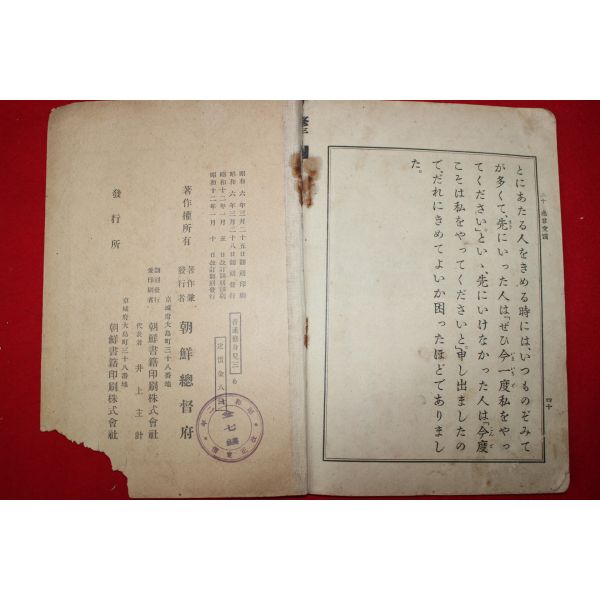 四十
とにあたる人をきめる時には、いつものぞみて
が多くて、先にいった人は「ぜひ今一度私をやっ
てください。」といい、先にいけなかった人は「今度
こそは私をやってくださいと。」申し出ましたの
で、だれにきめてよいか困ったほどでありまし
た。
昭和六年三月二十五日翻刻印刷
昭和六年三月二十八日翻刻發行
昭和十二年一月五日改訂翻刻印刷
昭和十二年一月十日改訂翻刻發行
普通修身兒三
著作權所有
著作兼發行者
朝鮮總督府
京城府大島町三十八番地
翻刻發行兼印刷者
朝鮮書籍印刷株式會社
代表者 井上主計
京城府大島町三十八番地
發行所
朝鮮書籍印刷株式會社